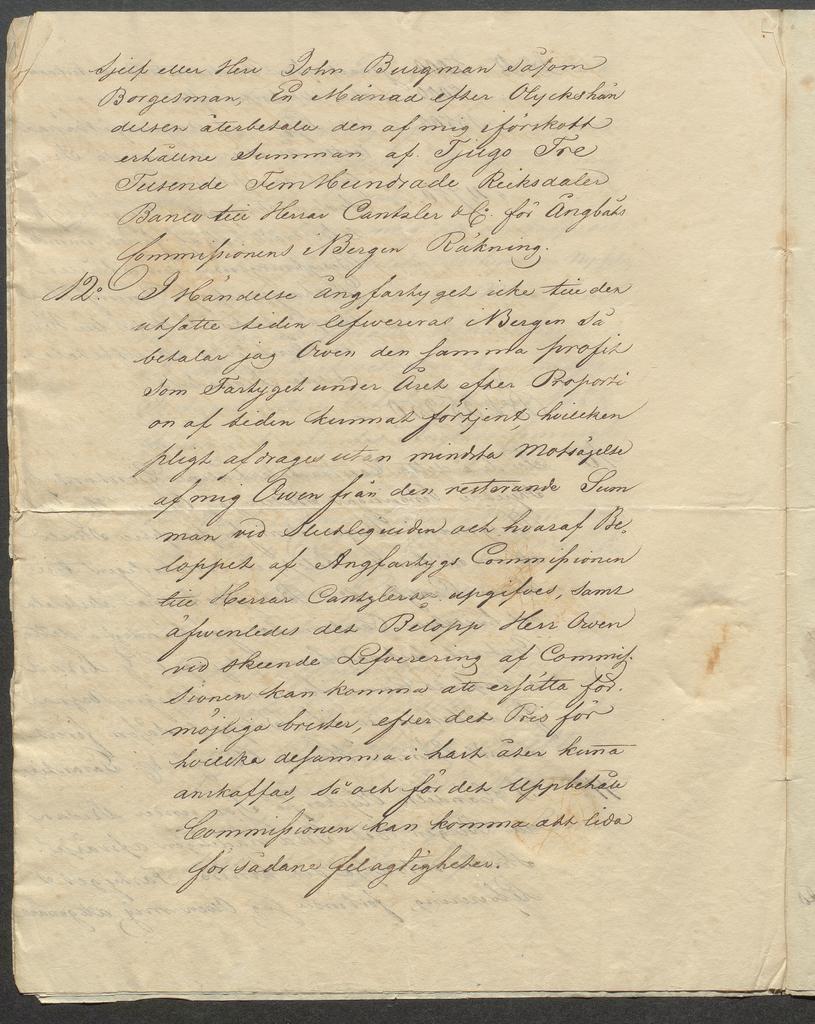 sjelf eller Herr John Burgman såsom
Borgesman, En Månad efter Olyckshän
delsen återbetala den af mig i förskott
erhållne Summan af Tjugo Tre
Tusende Fem Hundrade Reiksdaler
Banco till Herrar Cantzler & C: för Ångbåts
Commissionens i Bergen Räkning.
12:o I Händelse Ångfartyget icke till den
utsatte tiden lefwereras i Bergen så
betalar jag Owen den samma profit
som Fartyget under Året efter Proporti
on af tiden kunnat förtjent, hvilcken
pligt afdrages utan mindsta Motsägelse
af mig Owen från den resterande Sum
man vid Slutlequiden och hvaraf Be-
loppet af Angfartygs Commissionen
till Herrar Cantzlers upgifves, samt
äfwenledes det Belopp Herr Owen
vid skeende Lefverering af Commis-
sionen kan komma att ersätta för
möjliga brister, efter det Pris för
hvilcka desamma i hast åter kunna
anskaffas, så ock för det Uppehåll
Commissionen kan komma att lida
för sådane felagtigheter.